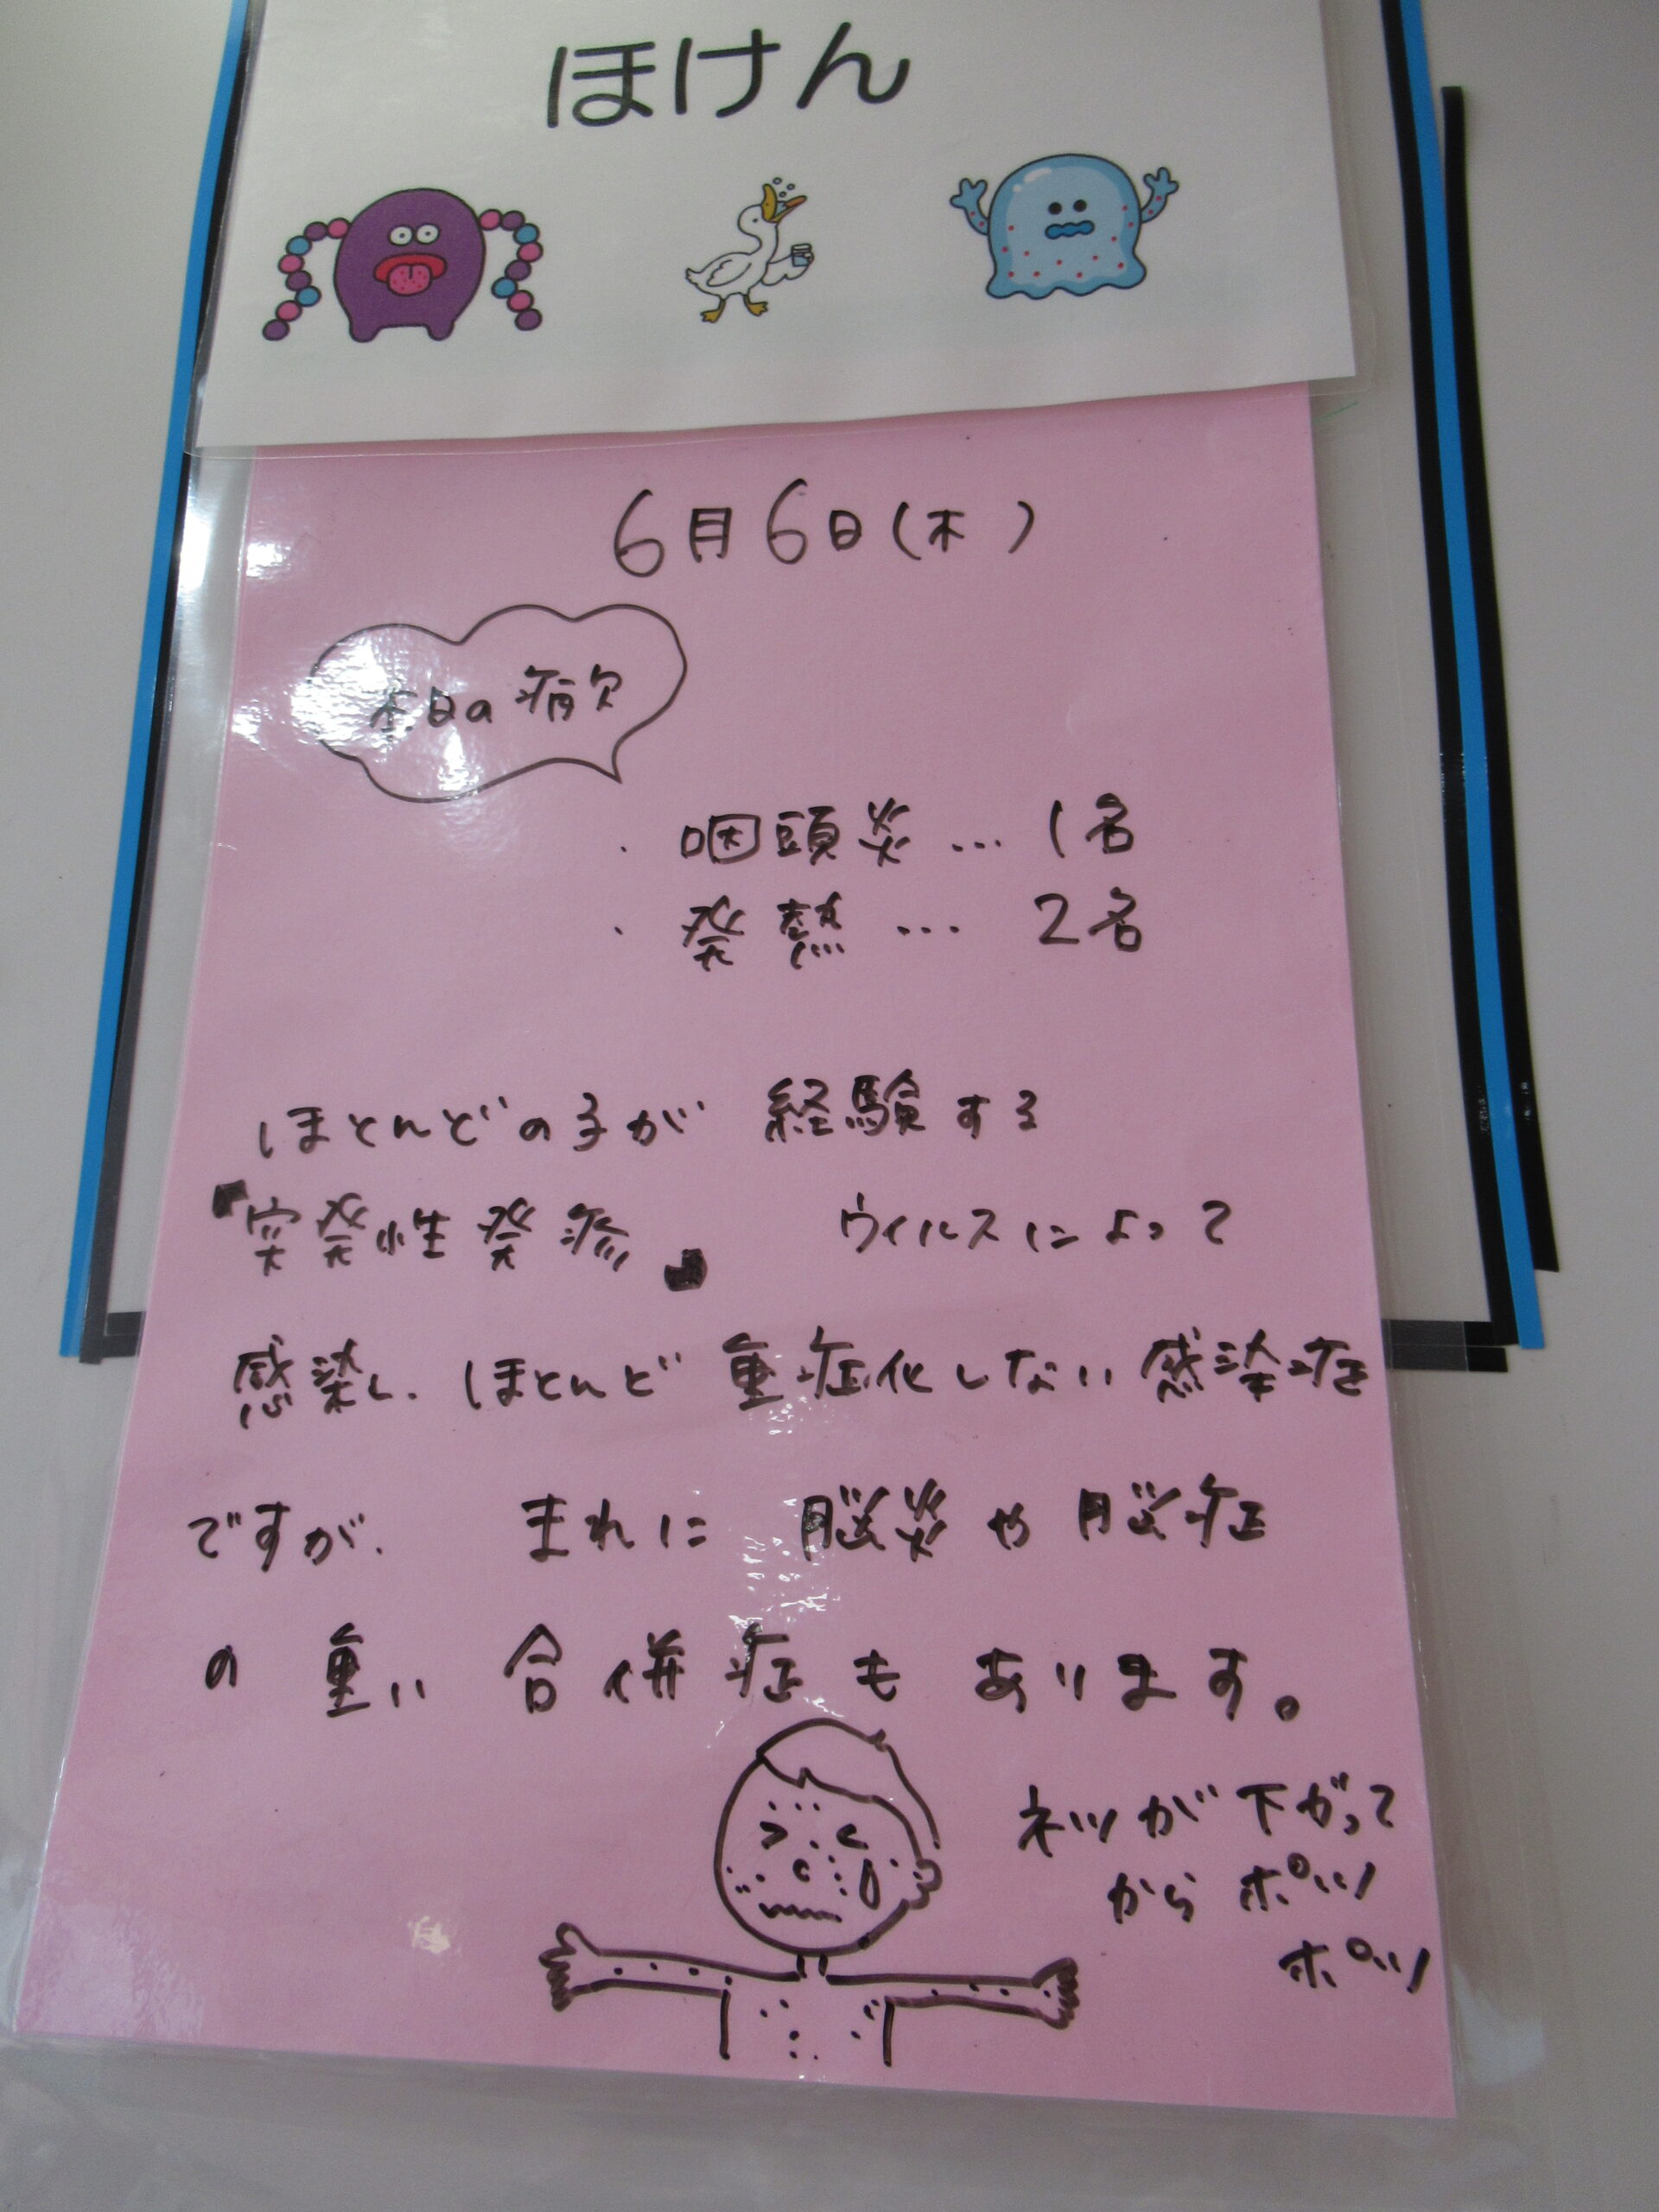 ほけん
6月6日(木)
本日の病欠
・咽頭炎…1名
・発熱…2名
ほとんどの子が経験する
『突発性発疹』 ウイルスによって
感染し、ほとんど重症化しない感染症
ですが、まれに脳炎や脳症
の重い合併症もあります。
ネツが下がって
からポツ
ポツ